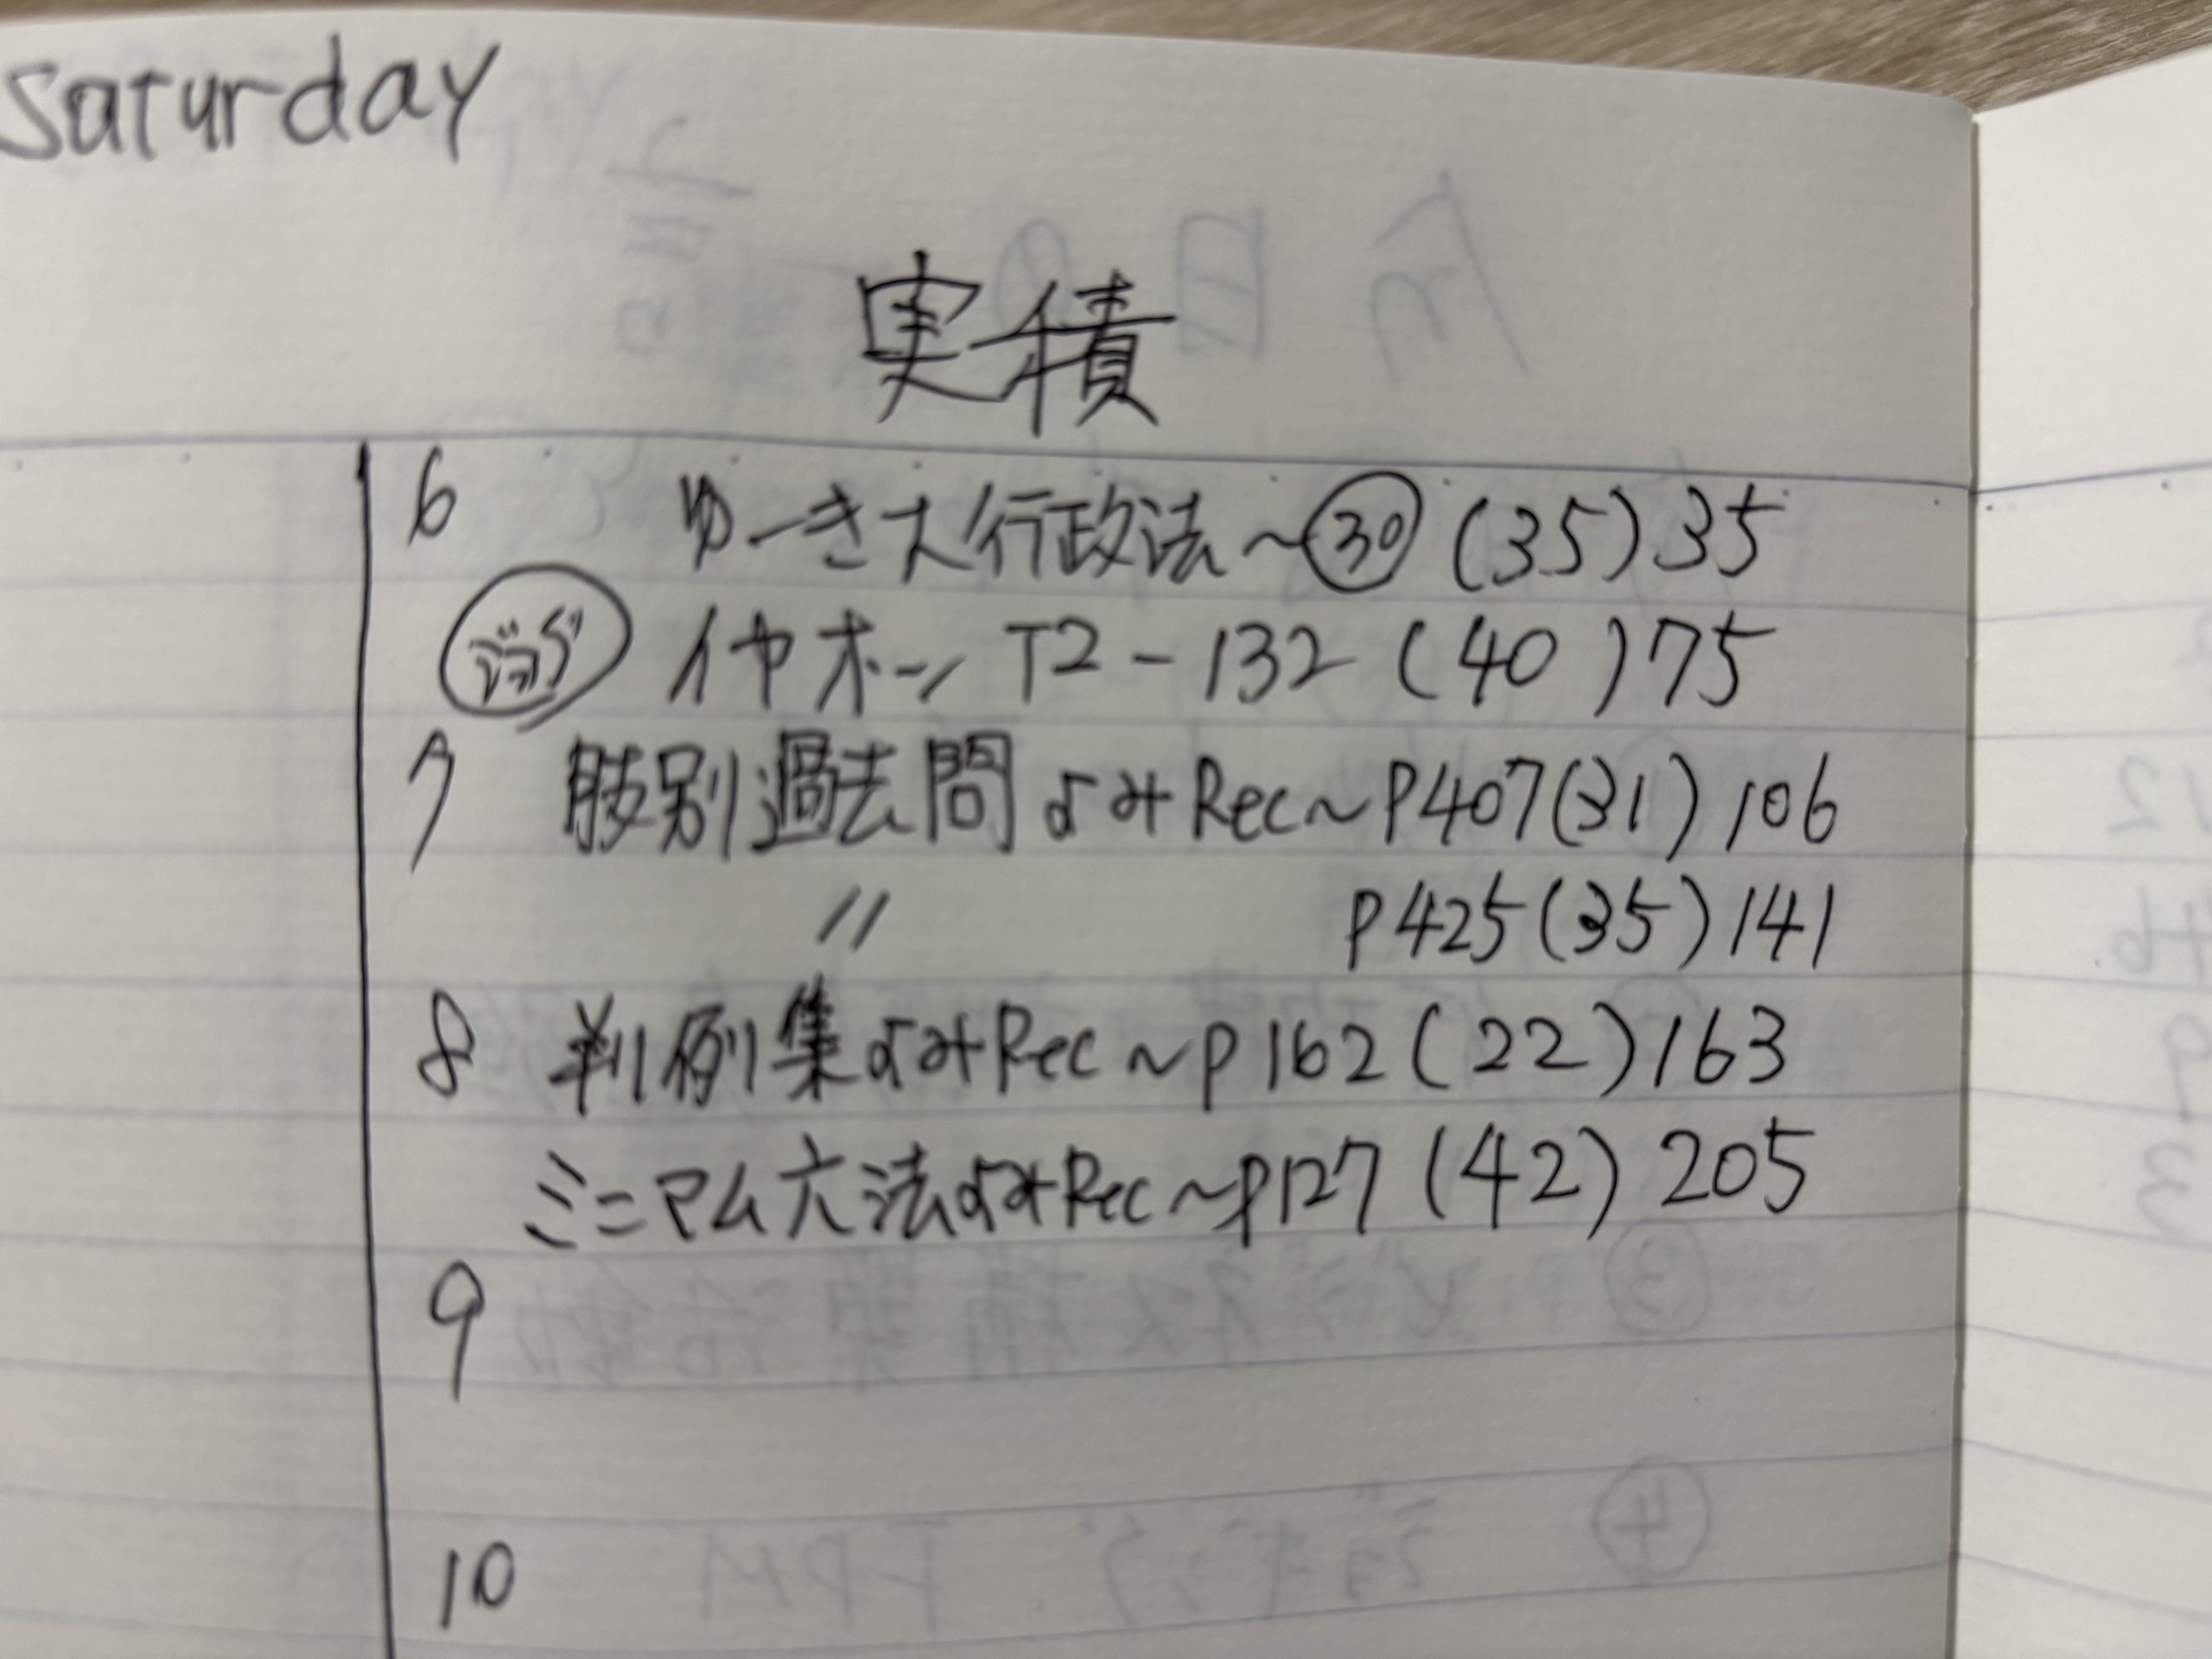 Saturday
実積
6 ゆーき大行政法~㉚ (35) 35
ジョグ イヤホン T2-132 (40) 75
7 肢別過去問 よみ Rec~P407(31) 106
〃 P425(35) 141
8 判例集よみRec~P162(22) 163
ミニマム六法よみRec~P127 (42) 205
9
10